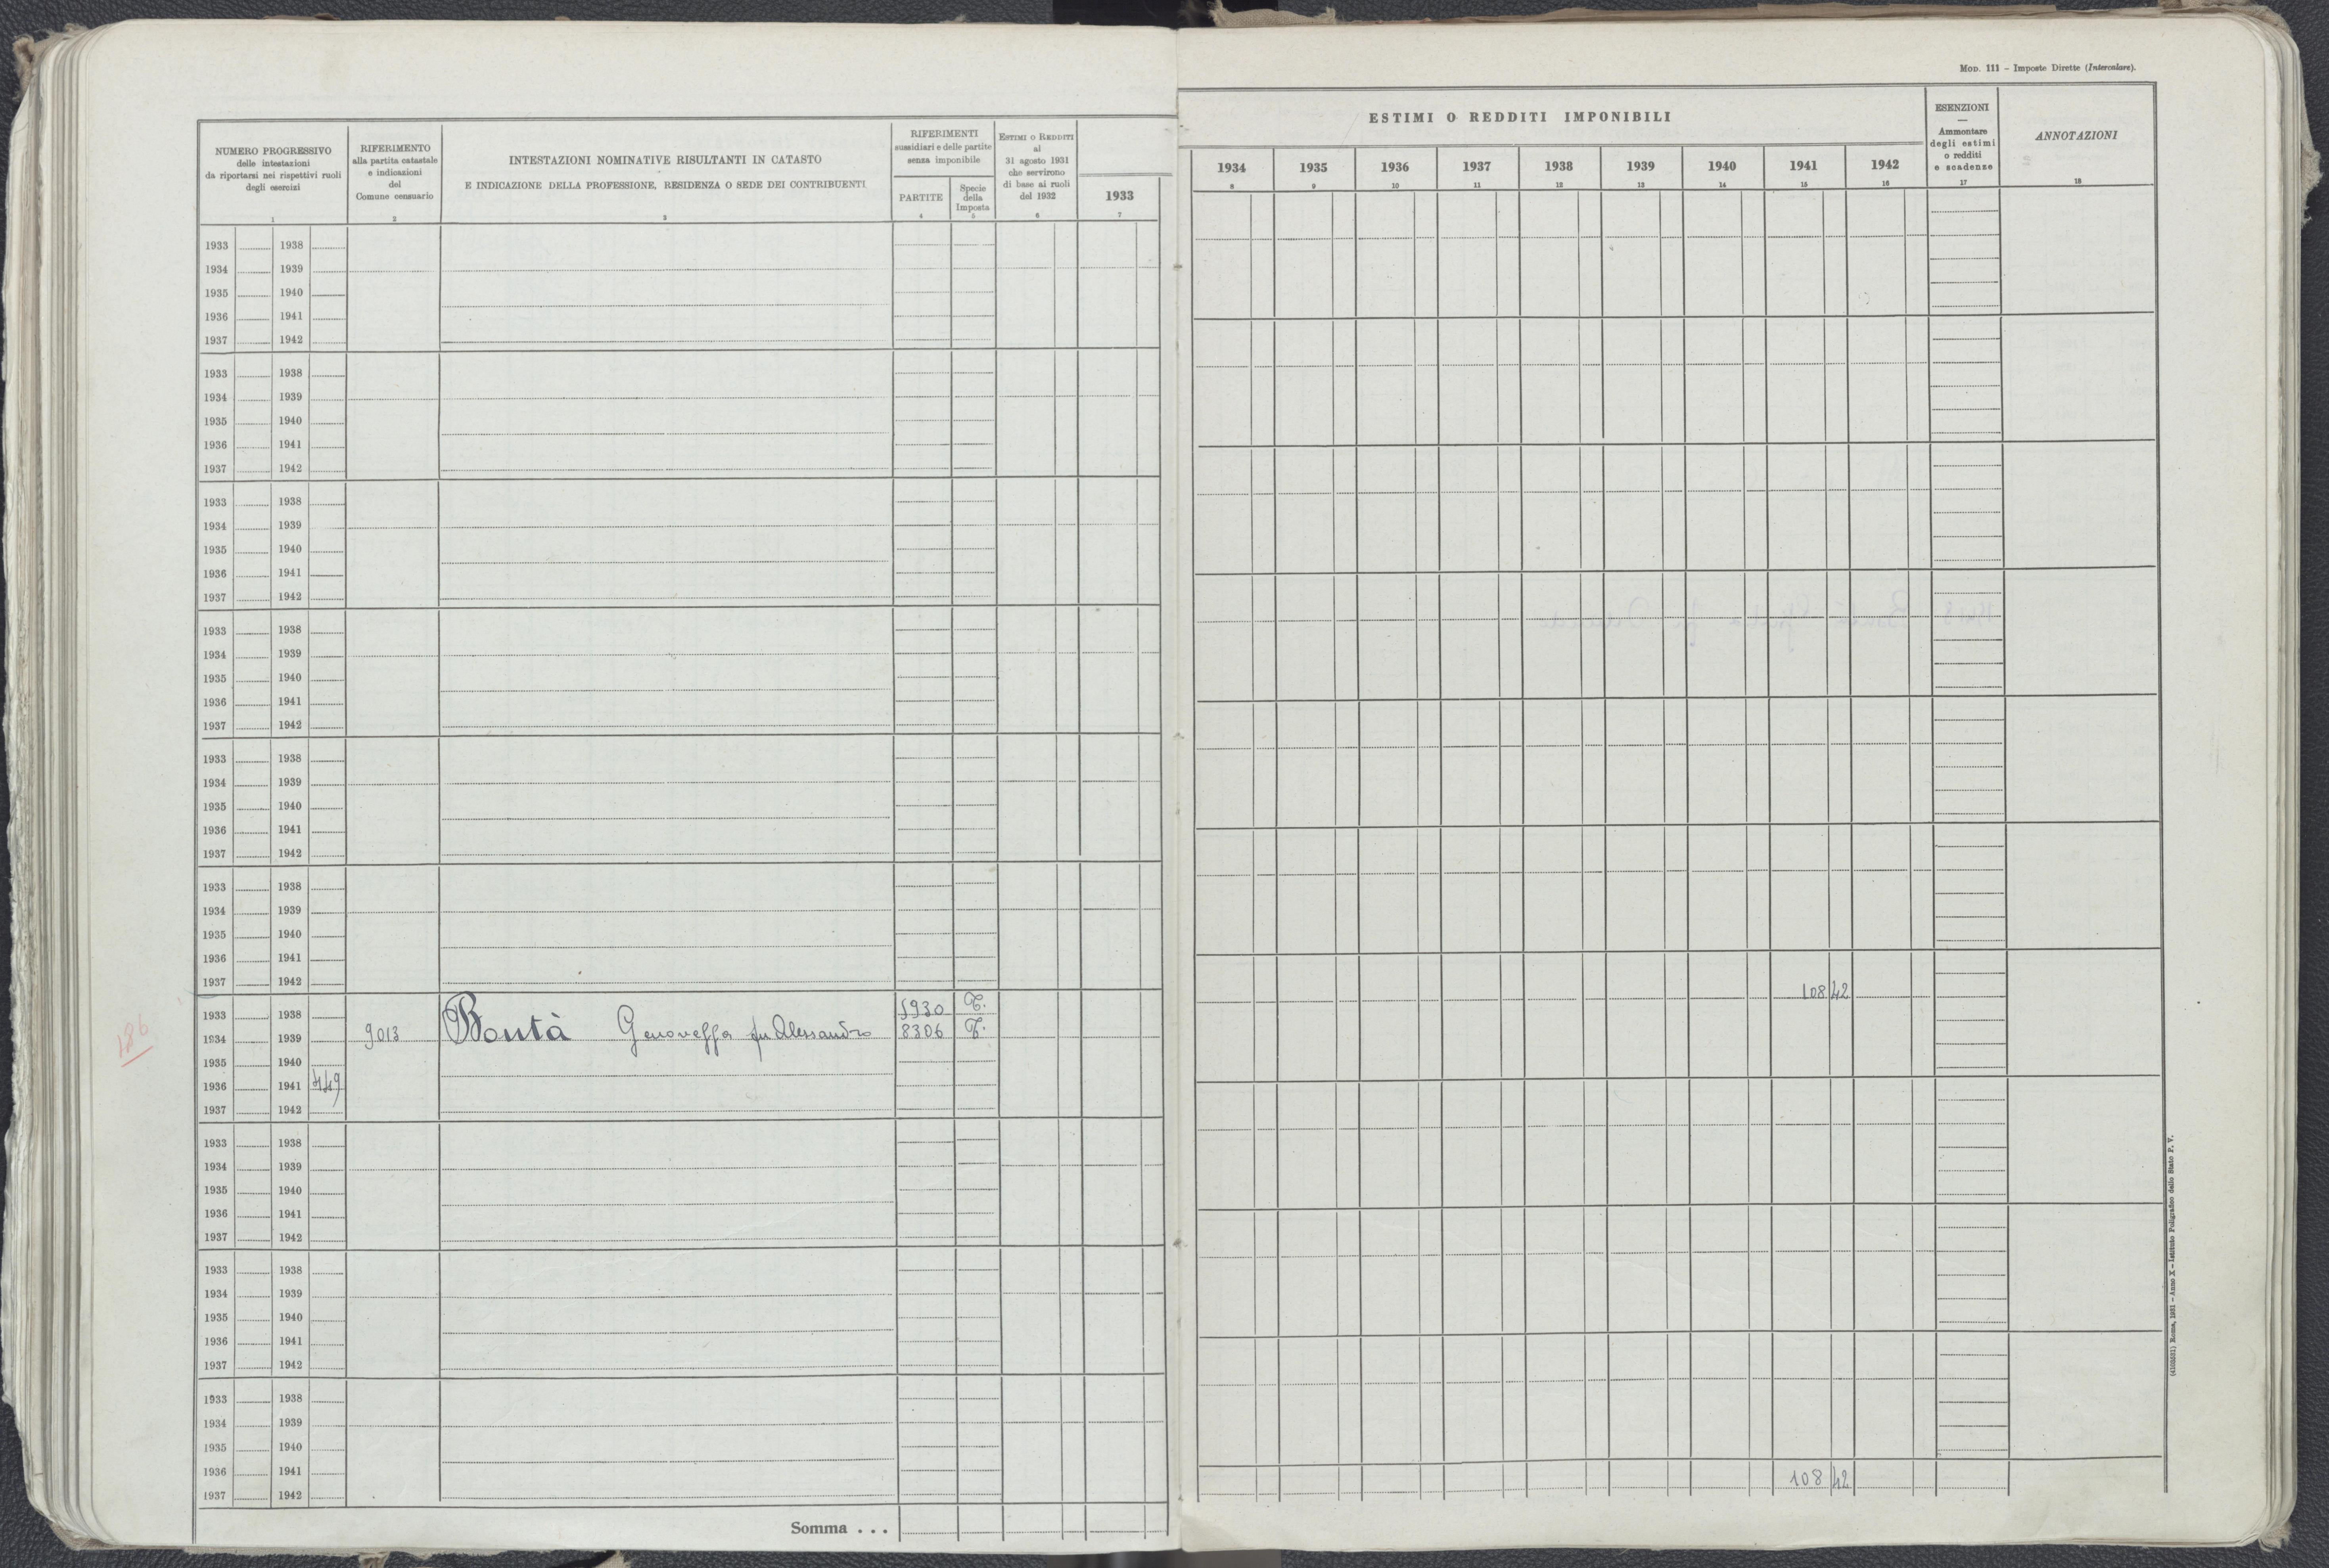 MOD. 111 – Imposte Dirette (Intercalare).
NUMERO PROGRESSIVO
delle intestazioni
da riportarsi nei rispettivi ruoli
degli esercizi
1
RIFERIMENTO
alla partita catastale
e indicazioni
del
Comune censuario
2
INTESTAZIONI NOMINATIVE RISULTANTI IN CATASTO
E INDICAZIONE DELLA PROFESSIONE, RESIDENZA O SEDE DEI CONTRIBUENTI
3
RIFERIMENTI
sussidiari e delle partite
senza imponibile
PARTITE
4
Specie
della
Imposta
5
ESTIMI O REDDITI
al
31 agosto 1931
che servirono
di base ai ruoli
del 1932
6
1933
7
ESTIMI O REDDITI IMPONIBILI
1934 1935 1936 1937 1938 1939 1940 1941 1942
8 9 10 11 12 13 14 15 16
ESENZIONI
—
Ammontare
degli estimi
o redditi
e scadenze
17
ANNOTAZIONI
18
1933 1938
1934 1939
1935 1940
1936 1941
1937 1942
1933 1938
1934 1939
1935 1940
1936 1941
1937 1942
1933 1938
1934 1939
1935 1940
1936 1941
1937 1942
1933 1938
1934 1939
1935 1940
1936 1941
1937 1942
1933 1938
1934 1939
1935 1940
1936 1941
1937 1942
1933 1938
1934 1939
1935 1940
1936 1941
1937 1942
1933 1938 5930 T. 108 42
1934 1939 9013 Bontà Genoveffa fu Alessandro 8306 T.
1935 1940
1936 1941 449
1937 1942
186
1933 1938
1934 1939
1935 1940
1936 1941
1937 1942
1933 1938
1934 1939
1935 1940
1936 1941
1937 1942
1933 1938
1934 1939
1935 1940
1936 1941
1937 1942
Somma . . . 108 42
(4103531) Roma, 1931 – Anno X – Istituto Poligrafico dello Stato P. V.